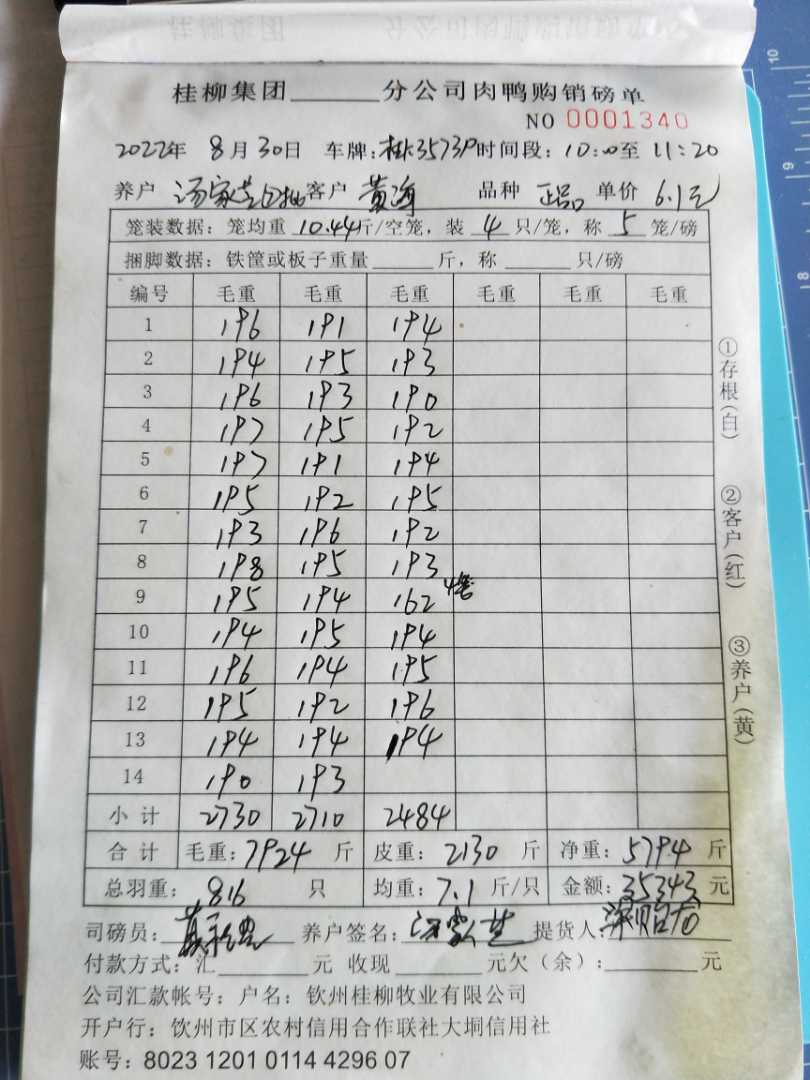 桂柳集团______分公司肉鸭购销磅单
NO 0001340
2022年 8月30日 车牌:桂 3573P 时间段: 10:00至 11:20
养户 汤家芝 客户 黄海 品种 正品 单价 6.1元
笼装数据: 笼均重 10.44斤/空笼, 装 4 只/笼, 称 5 笼/磅
捆脚数据: 铁筐或板子重量______斤, 称______只/磅
编号 毛重 毛重 毛重 毛重 毛重 毛重
1 196 191 194
2 194 195 193
3 196 193 190
4 197 195 192
5 197 191 194
6 195 192 195
7 193 196 192
8 198 195 193
9 195 194 162 4笼
10 194 195 194
11 196 194 195
12 195 192 196
13 194 194 194
14 190 193
小计 2730 2710 2484
合计 毛重: 7924 斤 皮重: 2130 斤 净重: 5794 斤
总羽重: 816 只 均重: 7.1 斤/只 金额: 35343 元
司磅员: 养户签名: 汤家芝 提货人:
付款方式: 汇______元 收现______元欠(余):______元
公司汇款帐号: 户名: 钦州桂柳牧业有限公司
开户行: 饮州市区农村信用合作联社大垌信用社
账号: 8023 1201 0114 4296 07
①存根(白)
②客户(红)
③养户(黄)
10
8